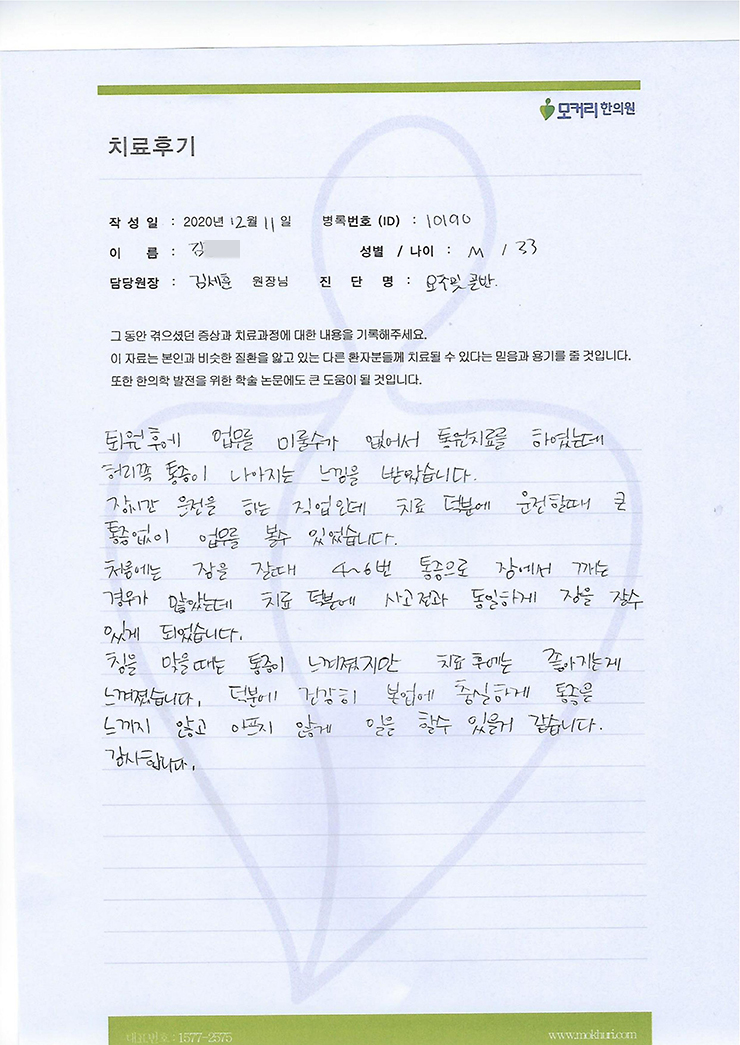 모커리한의원
치료후기
작 성 일 : 2020년 12월 11일 병록번호 (ID) : 10190
이 름 : 김
성별 / 나이 : M / 33
담당원장 : 김세훈 원장님 진 단 명 : 요추및 골반.
그 동안 겪으셨던 증상과 치료과정에 대한 내용을 기록해주세요.
이 자료는 본인과 비슷한 질환을 앓고 있는 다른 환자분들께 치료될 수 있다는 믿음과 용기를 줄 것입니다.
또한 한의학 발전을 위한 학술 논문에도 큰 도움이 될 것입니다.
퇴원후에 업무를 미룰수가 없어서 통원치료를 하였는데
허리쪽 통증이 나아지는 느낌을 받았습니다.
장시간 운전을 하는 직업인데 치료 덕분에 운전할때 큰
통증없이 업무를 볼수 있었습니다.
처음에는 잠을 잘때 4~6번 통증으로 잠에서 깨는
경우가 많았는데 치료 덕분에 사고전과 동일하게 잠을 잘수
있게 되었습니다.
침을 맞을때는 통증이 느껴졌지만 치료 후에는 좋아지는게
느껴졌습니다. 덕분에 건강히 본업에 충실하게 통증을
느끼지 않고 아프지 않게 일을 할수 있을거 같습니다.
감사합니다.
대표번호 : 1577-2575
www.mokhuri.com